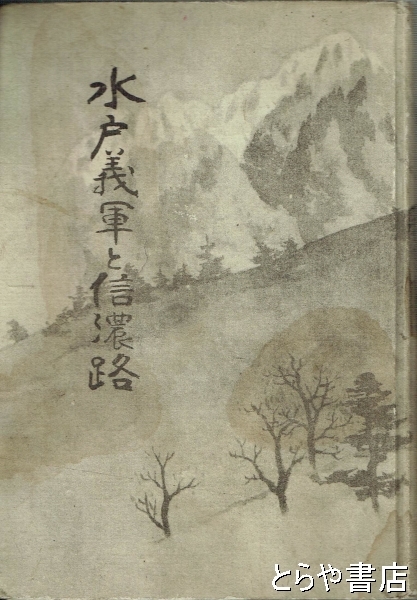 水戸義軍と信濃路
とらや書店